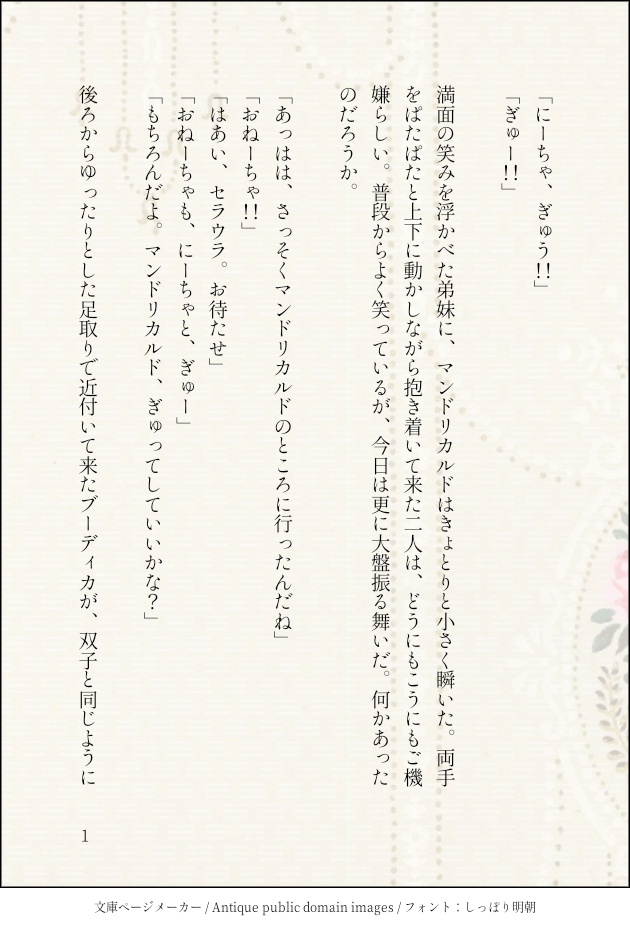 「にーちゃ、ぎゅう!!」
「ぎゅー!!」
満面の笑みを浮かべた弟妹に、マンドリカルドはきょとりと小さく瞬いた。両手
をぱたぱたと上下に動かしながら抱き着いて来た二人は、どうにもこうにもご機
嫌らしい。普段からよく笑っているが、今日は更に大盤振る舞いだ。何かあった
のだろうか。
「あっはは、さっそくマンドリカルドのところに行ったんだね」
「おねーちゃ!!」
「はあい、セラウラ。お待たせ」
「おねーちゃも、にーちゃと、ぎゅー」
「もちろんだよ。マンドリカルド、ぎゅってしていいかな?」
後ろからゆったりとした足取りで近付いて来たブーディカが、双子と同じように
1
文庫ページメーカー / Antique public domain images / フォント：しっぽり明朝